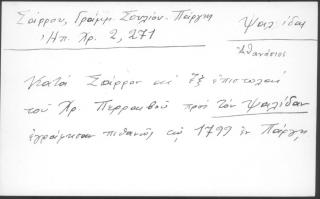 Σάρρου, Γράμμ. Σουλίου - Πάργης
Ψαλίδας
Ἠπ. Χρ. 2, 271
Ἀθανάσιος
Κατὰ Σάρρον αἱ ἓξ ἐπιστολαὶ
τοῦ Χρ. Περραιβοῦ πρὸς τὸν Ψαλίδαν
ἐγράφησαν πιθανῶς τῷ 1799 ἐν Πάργῃ